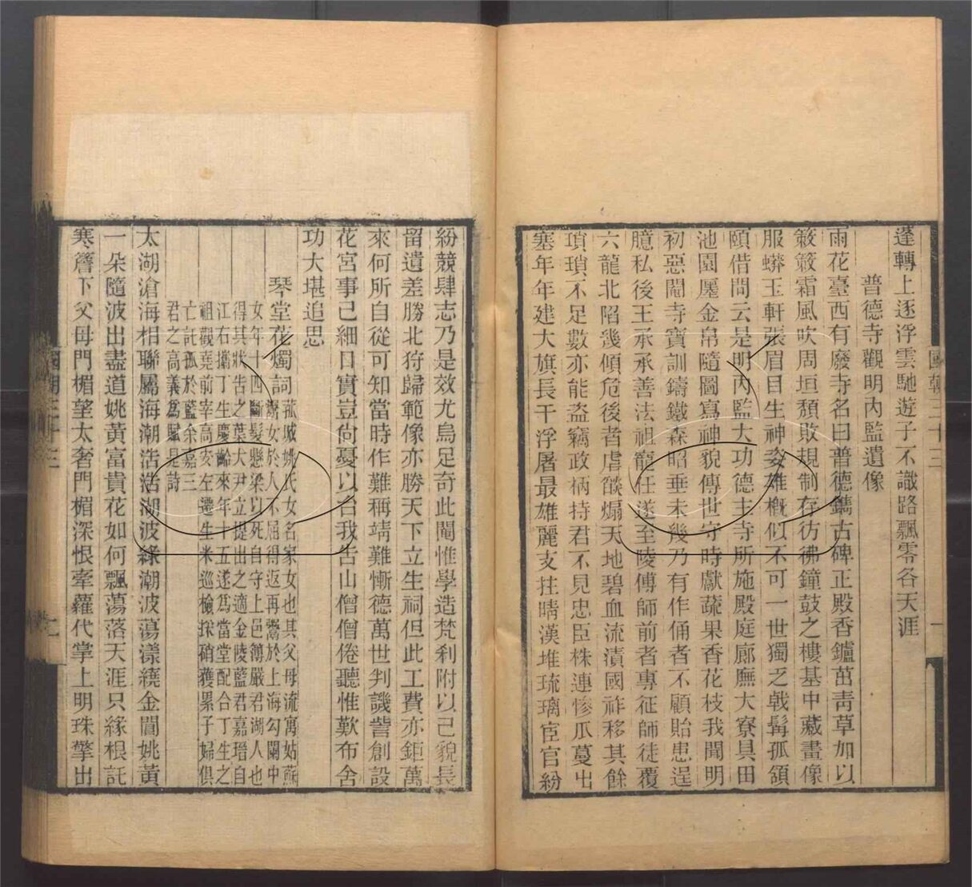 蓬轉上逐浮雲馳遊子不識路飄零谷天涯
普德寺觀明內監遺像
雨花臺西有廢寺名曰普德鐫古碑正殿香鑪茁靑草加以
簌簌霜風吹周垣頹敗規制存彷彿鐘鼓之樓基中藏畫像
服蟒玉軒張眉目生神姿雄概似不可一世獨之戟髯孤頷
頤借問云是明內監大功德主寺所施殿庭廊廡大寮具田
池園廛金帛隨圖寫神貌傳世守時獻蔬果香花枝我聞明
初惡閹寺寶訓鑄鐵森昭垂未幾乃有作俑者不顧貽患逞
臆私後王承承善法祖寵任遂至陵傅師前者專征師徒覆
六龍北陷幾傾危後者虐燄煽天地碧血流漬國祚移其餘
瑣瑣不足數亦能盜竊政柄持君不見忠臣株連慘瓜蔓出
塞年年建大旗長干浮屠最雄麗支拄晴漢堆琉璃宦官紛
紛競肆志乃是效尤烏足奇此閹惟學造梵利附以己貌長
留遺差勝北狩歸範像亦勝天下立生祠但此工費亦鉅萬
來何所自從可知當時作難稱靖難慚德萬世判譏訾創設
花宮事已細日實豈尙憂以台我告山僧僧倦聽惟歎布舍
功大堪追思
琴堂花燭詞
菰城姚氏女名家女也其父母流寓姑蘇
鬻女於人不屈得返再鬻於上海勾闌中
女年十四斷髮懸梁以死自守上邑簿嚴君湖人也
得其狀吿之葉大尹立提出之適金陵藍君嘉瑨自
江右攜丁生慶齡來年十五遂爲當堂配合丁生之
祖觀堯前宰高安左蠡生米巡檢採硝獲累子婦俱
亡託孤於藍余嘉三
君之高義爲賦是詩
太湖滄海相聯屬海潮浩浩湖波綠潮波蕩漾繞金閶姚黃
一朵隨波出盡道姚黃富貴花如何飄蕩落天涯只緣根託
寒簷下父母門楣望太奢門楣深恨牽蘿代掌上明珠擎出